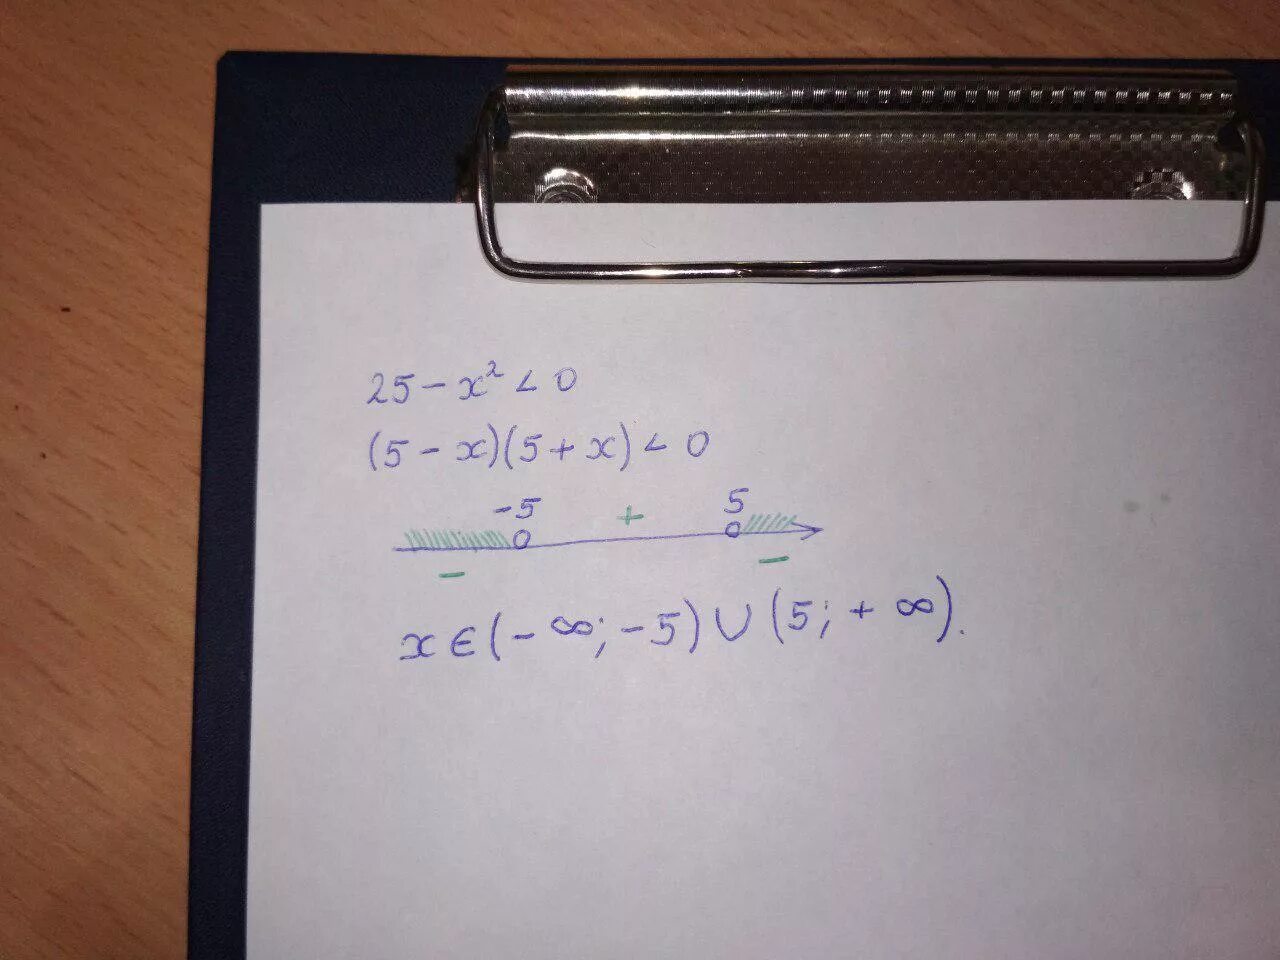 25 - x² < 0
(5 - x)(5 + x) < 0
-5 + 5
- -
x ∈ (- ∞; -5) ∪ (5; + ∞).